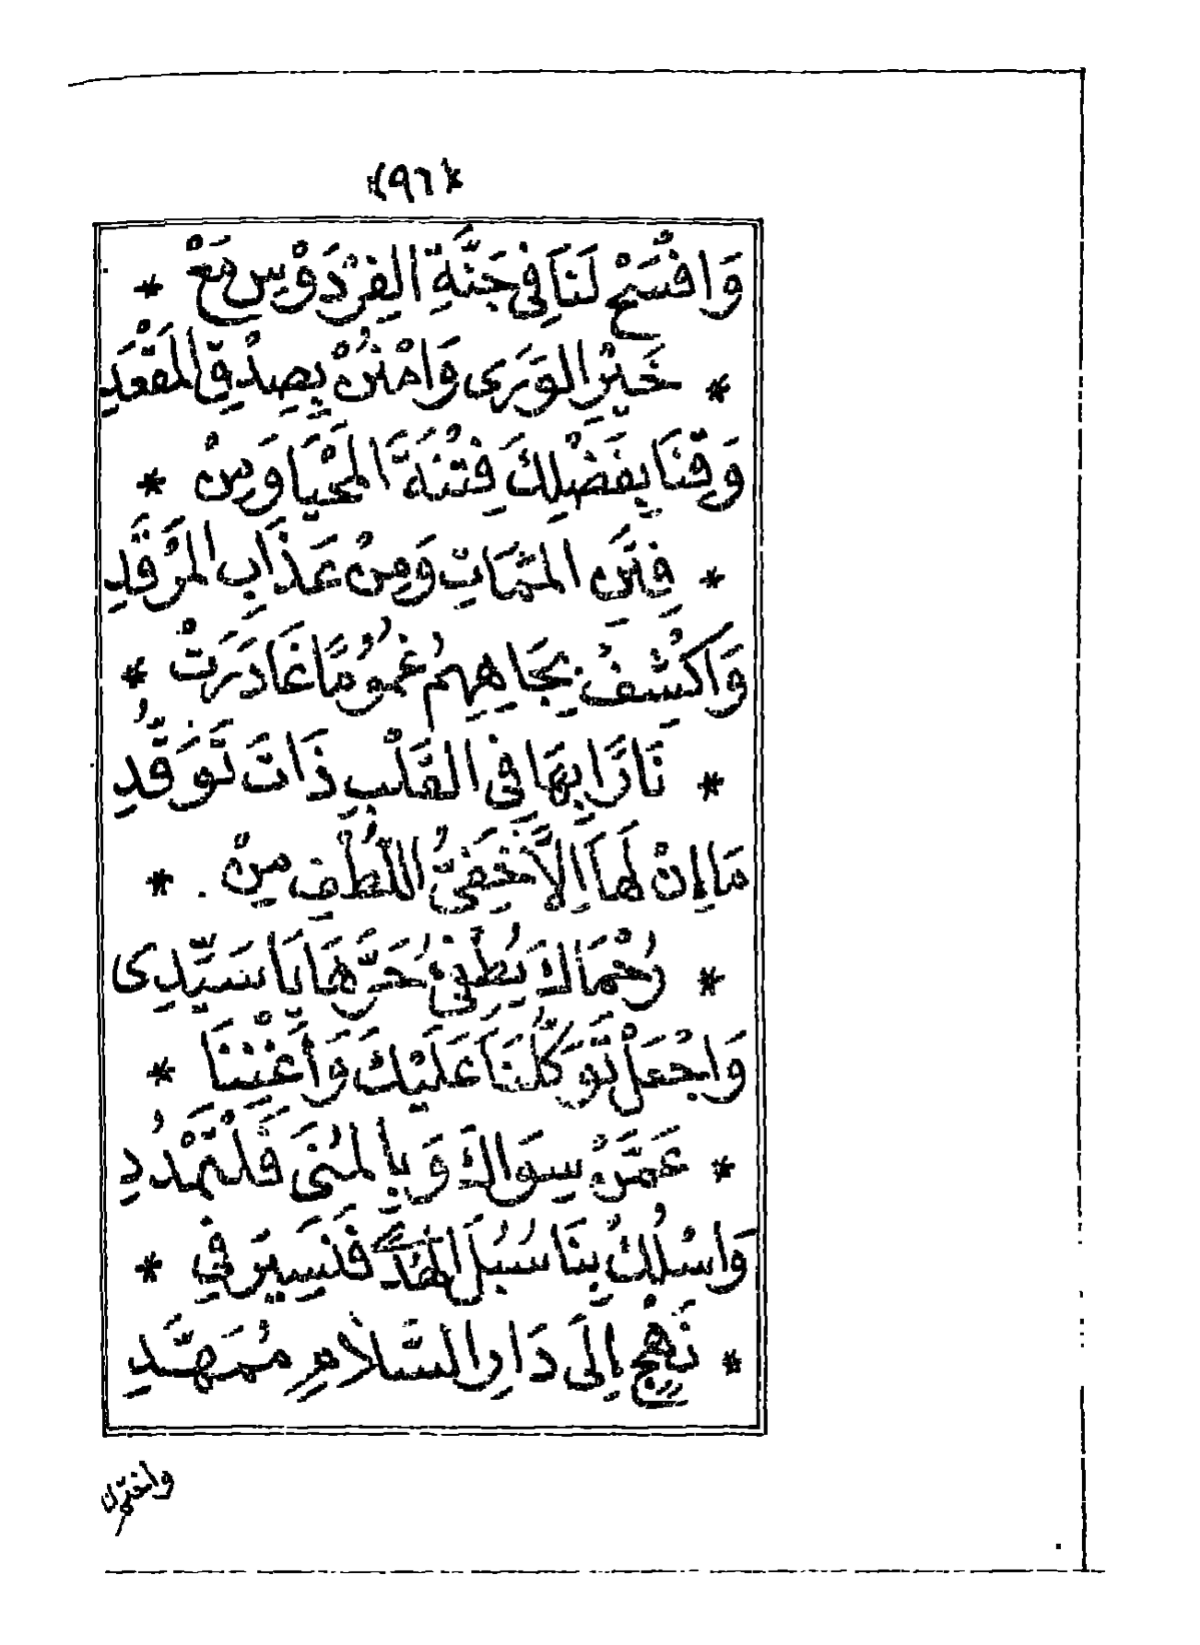 ﴿٩٦﴾
وَافْسَحْ لَنَا فِي جَنَّةِ الْفِرْدَوْسِ مَعْ *
* خَيْرِ الْوَرَى وَامْنُنْ بِصِدْقِ الْمَقْعَدِ
وَقِنَا بِفَضْلِكَ فِتْنَةَ الْمَحْيَا وَمِنْ *
* فِتَنِ الْمَمَاتِ وَمِنْ عَذَابِ الْمَرْقَدِ
وَاكْشِفْ بِجَاهِهِمُ غُمُومًا غَادَرَتْ *
* نَارًا بِهَا فِي الْقَلْبِ ذَاتَ تَوَقُّدِ
مَا إِنْ لَهَا إِلَّا خَفِيُّ اللُّطْفِ مِنْ *
* رُحْمَاكَ يُطْفِئُ حَرَّهَا يَا سَيِّدِي
وَاجْعَلْ تَوَكُّلَنَا عَلَيْكَ وَأَغْنِنَا *
* عَمَّنْ سِوَاكَ وَبِالْمُنَى فَلْتَمْدُدِ
وَاسْلُكْ بِنَا سُبُلَ الْهُدَى فَنَسِيرَ فِي *
* نَهْجٍ إِلَى دَارِ السَّلَامِ مُمَهَّدِ